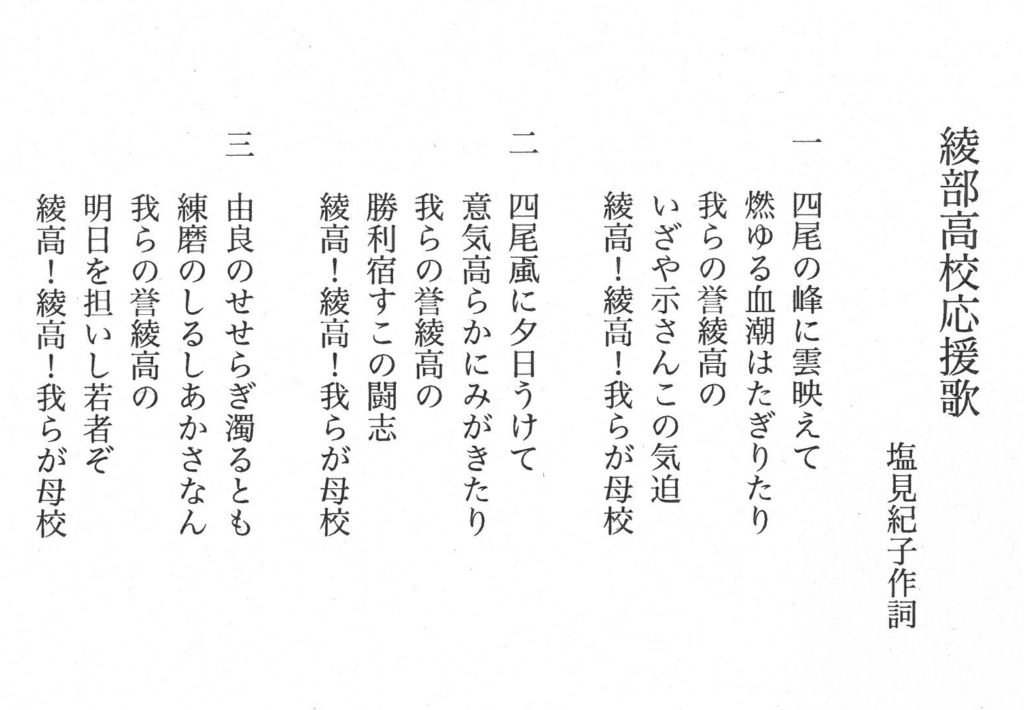 綾部高校応援歌
塩見紀子作詞
一
四尾の峰に雲映えて
燃ゆる血潮はたぎりたり
我らの誉綾高の
いざや示さんこの気迫
綾高！綾高！我らが母校
二
四尾颪に夕日うけて
意気高らかにみがきたり
我らの誉綾高の
勝利宿すこの闘志
綾高！綾高！我らが母校
三
由良のせせらぎ濁るとも
練磨のしるしあかさなん
我らの誉綾高の
明日を担いし若者ぞ
綾高！綾高！我らが母校